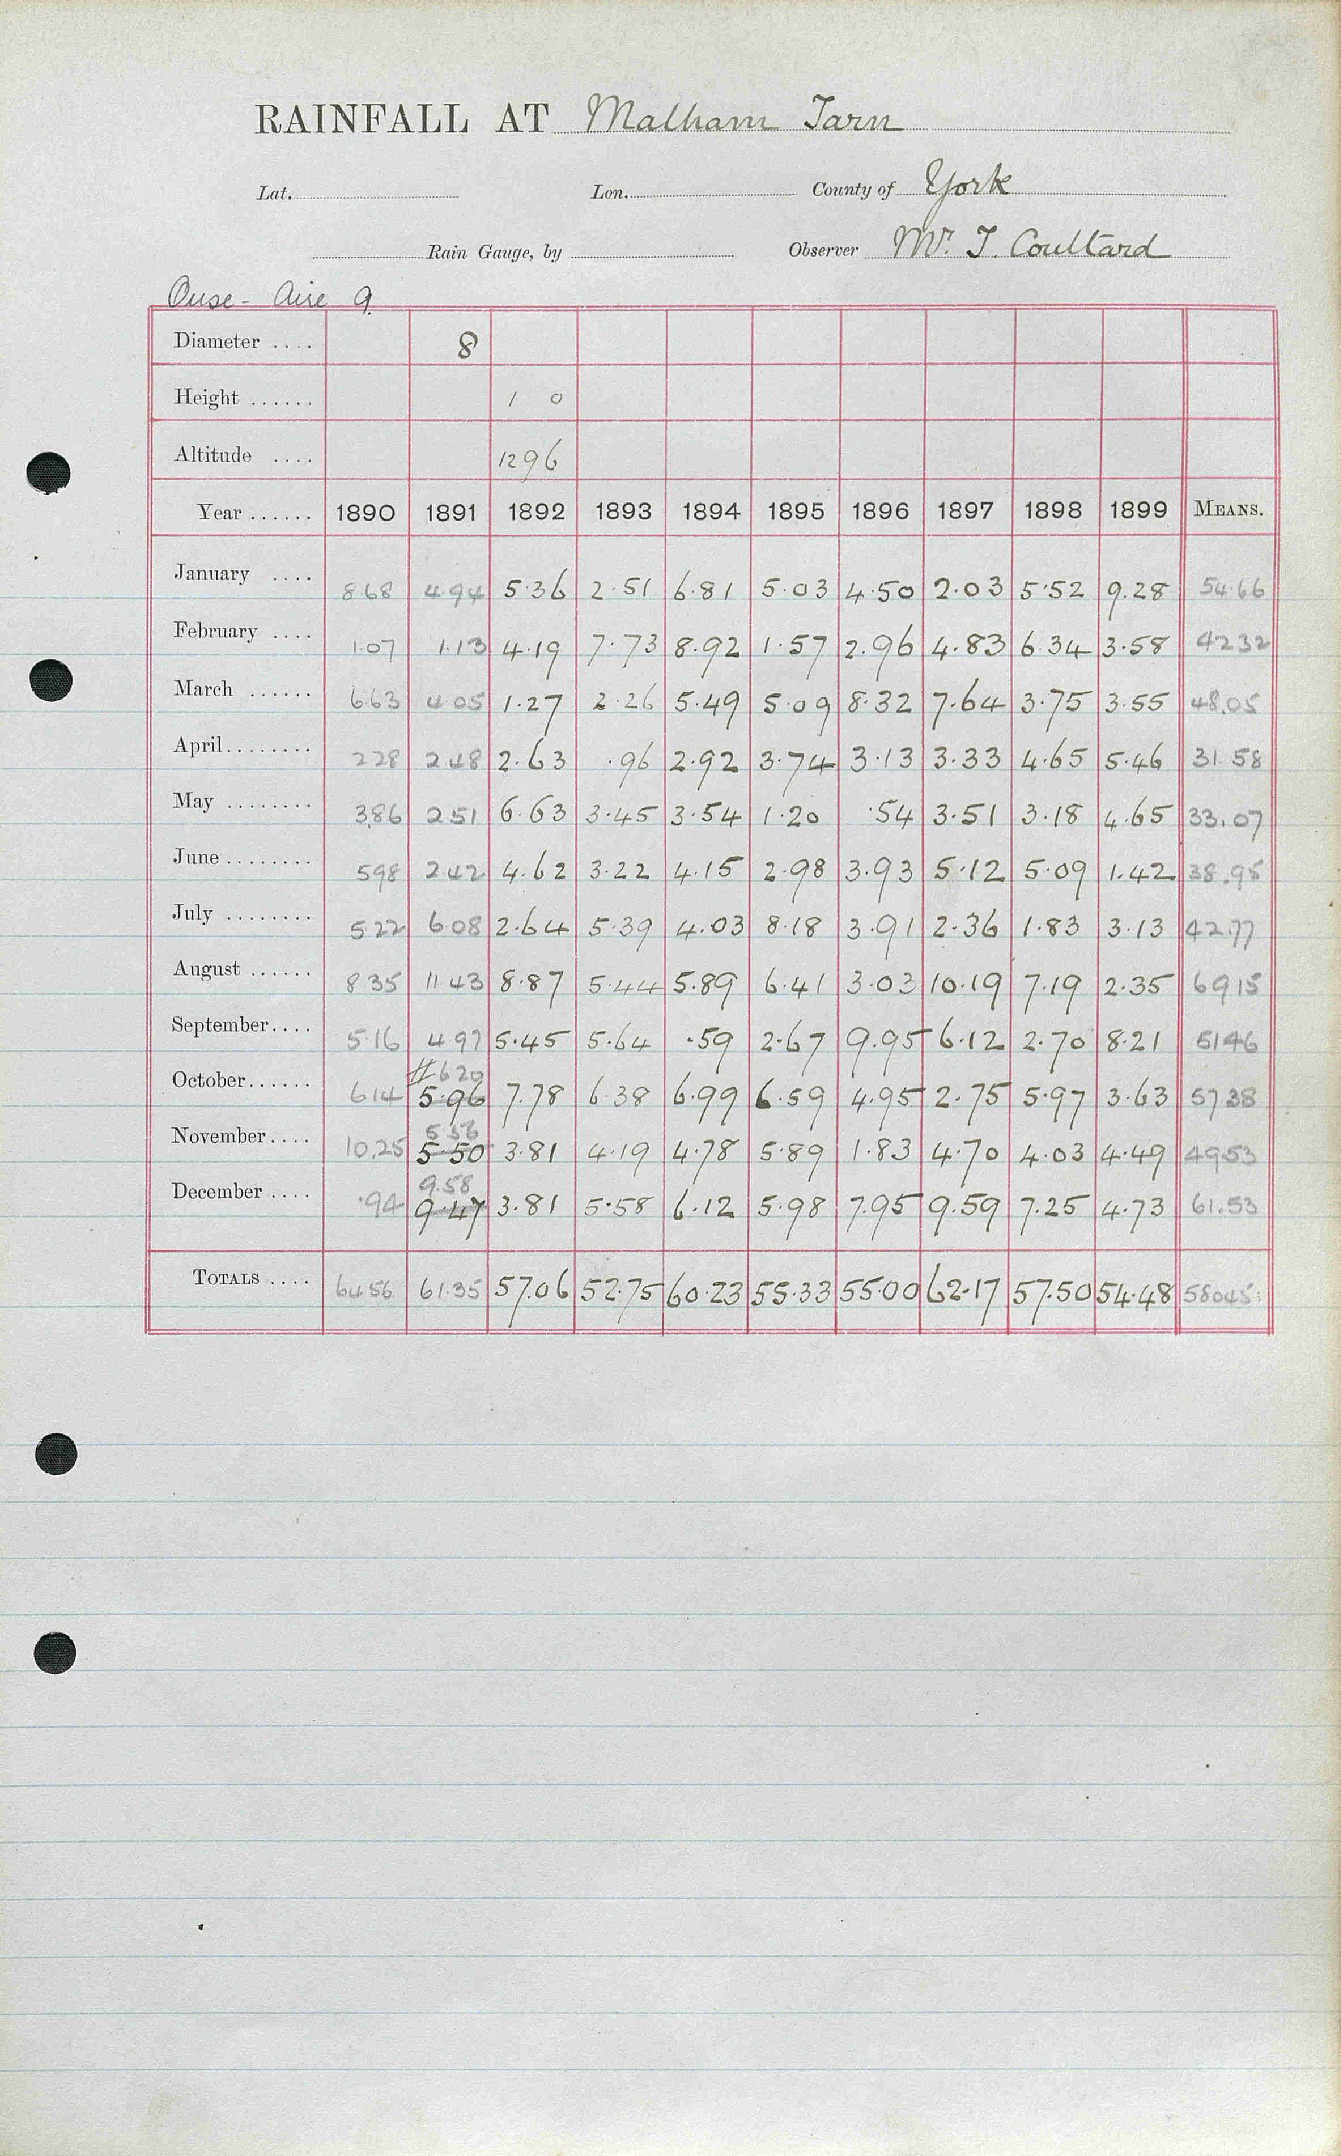 RAINFALL AT Malham Tarn
Lat. Lon. County of York
Rain Gauge, by Observer Mr. T. Coultard
Ouse - Aire 9.
Diameter .... 8
Height ...... 1 0
Altitude .... 1296
Year ...... 1890 1891 1892 1893 1894 1895 1896 1897 1898 1899 MEANS.
January .... 8 68 4.94 5.36 2.51 6.81 5.03 4.50 2.03 5.52 9.28 54.66
February .... 1.07 1.13 4.19 7.73 8.92 1.57 2.96 4.83 6.34 3.58 42 32
March ...... 6 63 4 05 1.27 2.26 5.49 5.09 8.32 7.64 3.75 3.55 48.05
April ........ 2 28 2 48 2.63 .96 2.92 3.74 3.13 3.33 4.65 5.46 31.58
May ........ 3.86 2 51 6.63 3.45 3.54 1.20 .54 3.51 3.18 4.65 33.07
June ........ 5 98 2 42 4.62 3.22 4.15 2.98 3.93 5.12 5.09 1.42 38.95
July ........ 5 22 6 08 2.64 5.39 4.03 8.18 3.91 2.36 1.83 3.13 42.77
August ...... 8 35 11 43 8.87 5.44 5.89 6.41 3.03 10.19 7.19 2.35 69 15
September.... 5.16 4 97 5.45 5.64 .59 2.67 9.95 6.12 2.70 8.21 51 46
# 6 20
October...... 6 14 5.96 7.78 6.38 6.99 6.59 4.95 2.75 5.97 3.63 57 38
5.56
November.... 10.25 5.50 3.81 4.19 4.78 5.89 1.83 4.70 4.03 4.49 49 53
9.58
December .... .94 9.47 3.81 5.58 6.12 5.98 7.95 9.59 7.25 4.73 61.53
TOTALS .... 64 56 61.35 57.06 52.75 60.23 55.33 55.00 62.17 57.50 54.48 580 45